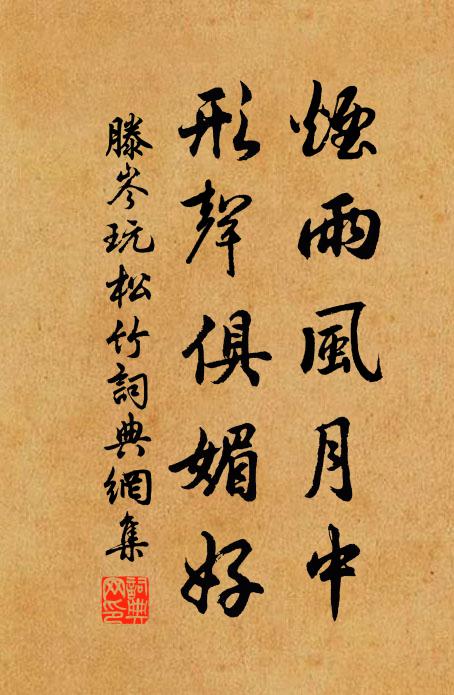 煙雨風月中
形聲俱媚好
滕岑玩松竹詞典網集
詞典網印